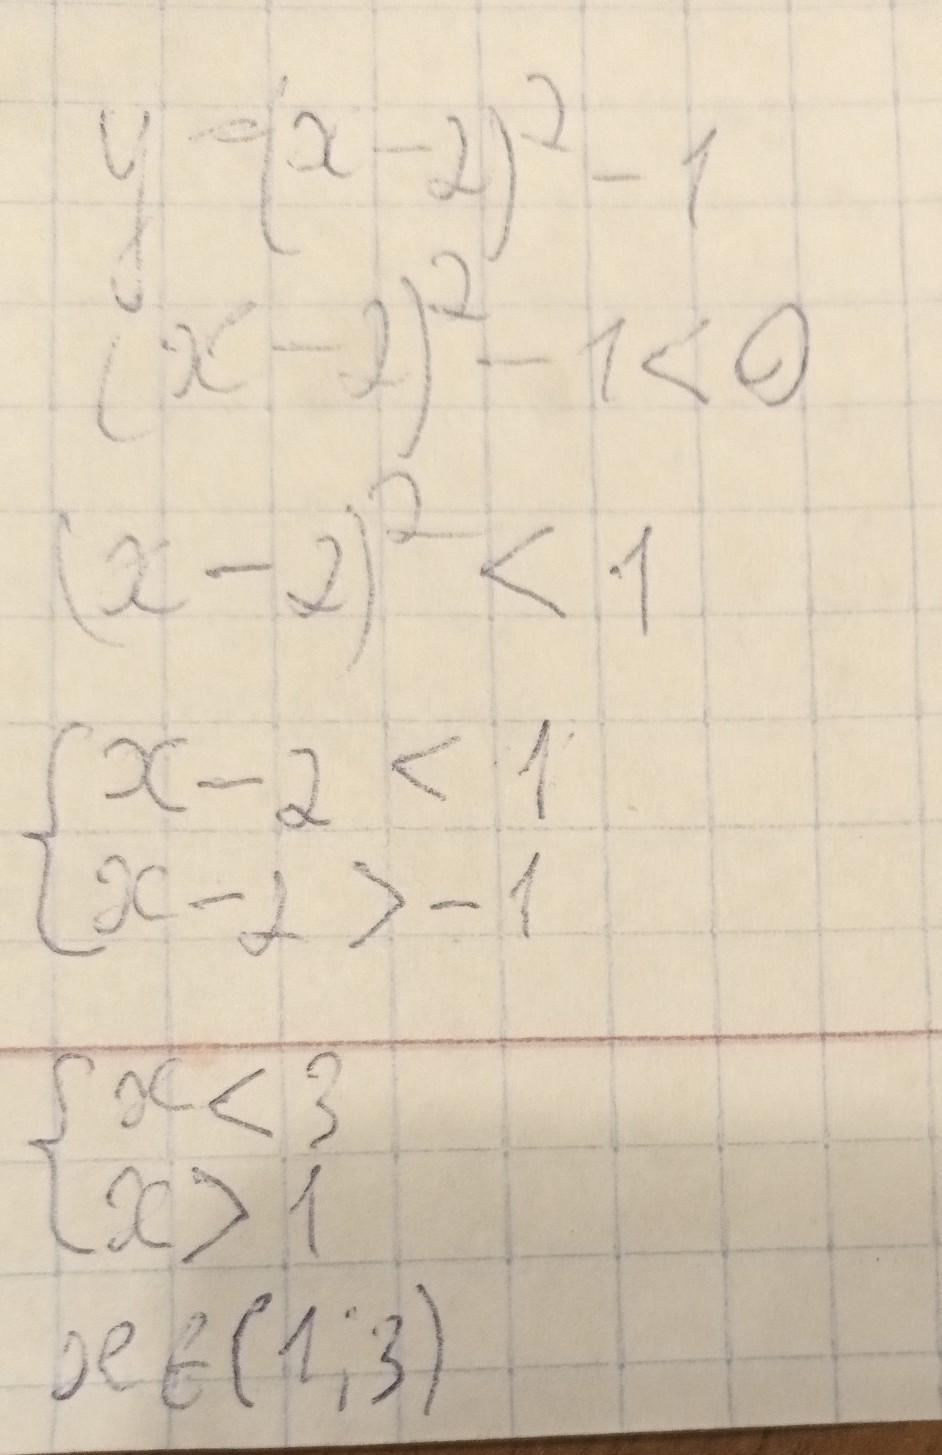 y = (x - 2)² - 1
(x - 2)² - 1 < 0
(x - 2)² < 1
{ x - 2 < 1
{ x - 2 > - 1
{ x < 3
{ x > 1
x ∈ (1; 3)